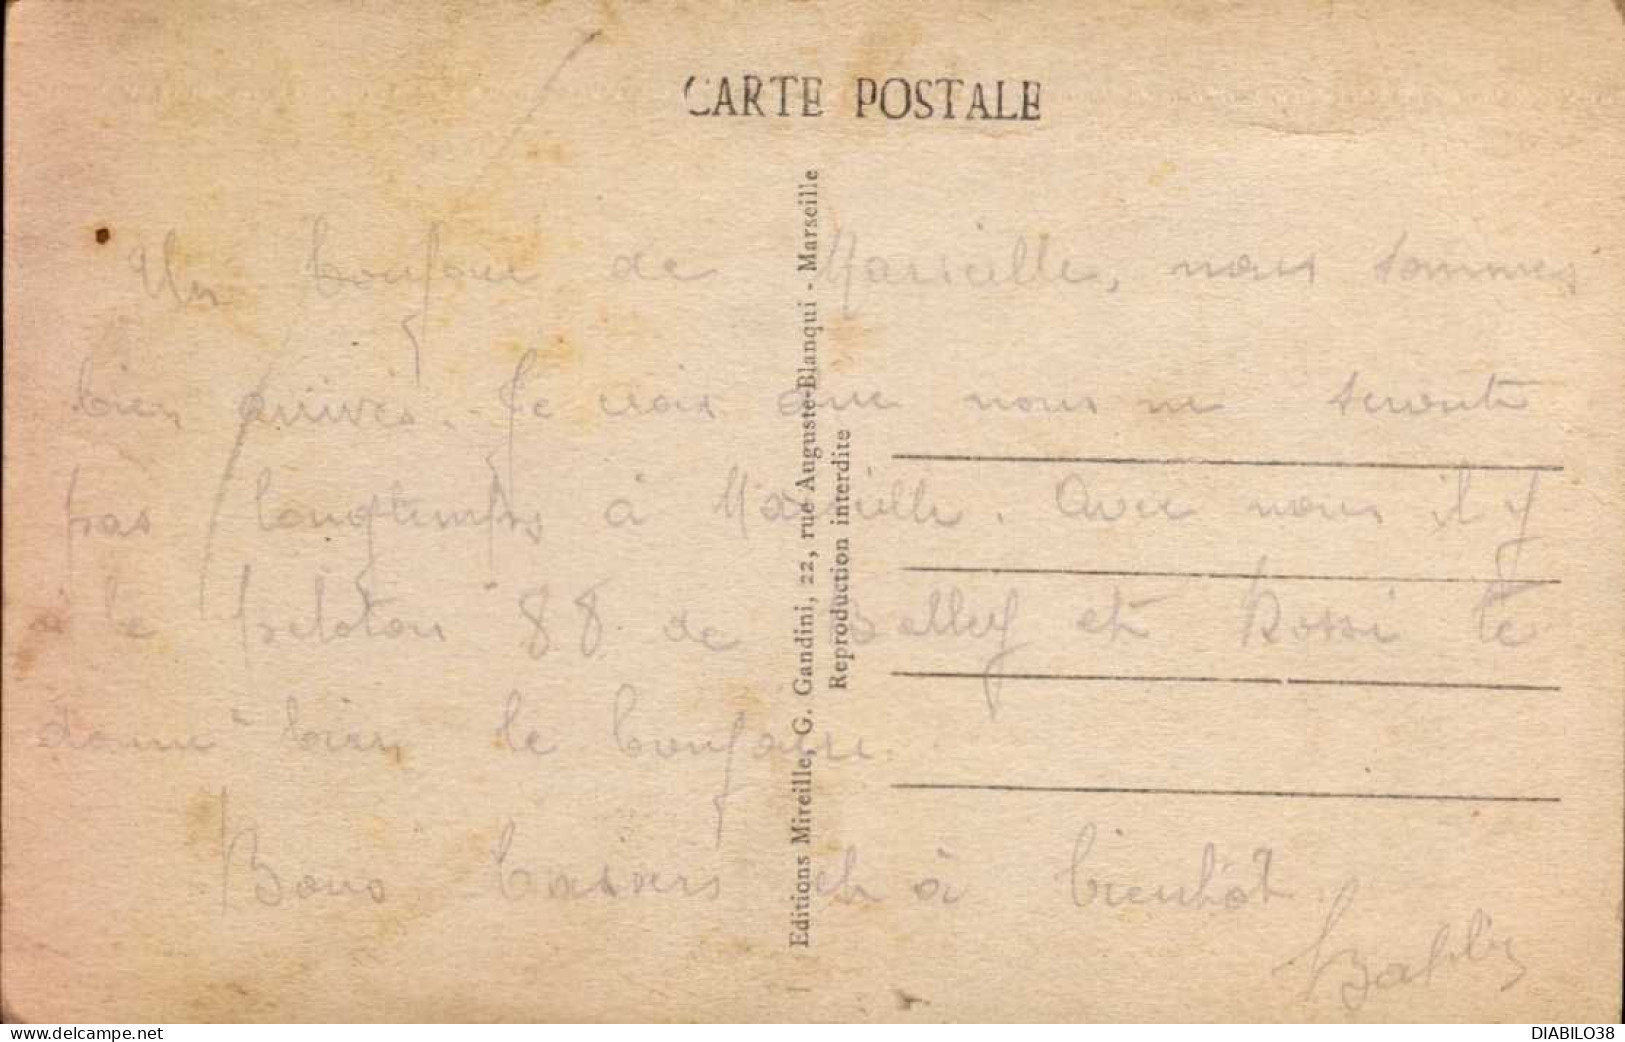 CARTE POSTALE
Un bonjour de Marseille, nous sommes
bien arrivés. Je crois que nous ne
pas longtemps à Marseille. Avec nous il y
a le peloton 88 de Belley et Rossi te
donne bien le bonjour.
Bons baisers et à bientôt
Editions Mireille, G. Gandini, 22, rue Auguste-Blanqui - Marseille
Reproduction interdite
DIABILO38